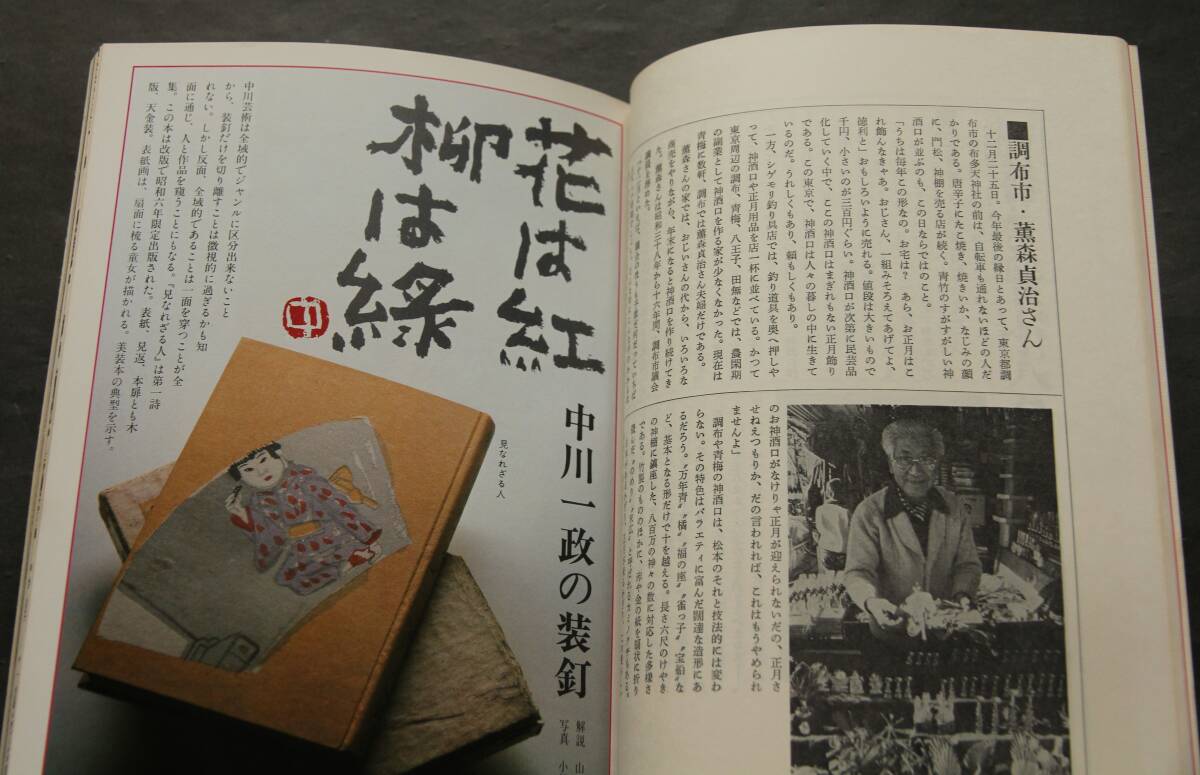 ■調布市・薫森貞治さん
十二月二十五日。今年最後の縁日とあって、東京都調
布市の布多天神社の前は、自転車も通れないほどの人だ
かりである。唐辛子にたこ焼き、焼きいか、なじみの顔
に、門松、神棚を売る店が続く。青竹のすがすがしい神
酒口が並ぶのも、この日ならではのこと。
「うちは毎年この形なの。お宅は？　あら、お正月はこ
れ飾んなきゃあ。おじさん、一組みそろえてあげてよ、
徳利と」おもしろいように売れる。値段は大きいもので
千円、小さいのが三百円ぐらい。神酒口が次第に民芸品
化していく中で、ここの神酒口はまぎれもない正月飾り
である。この東京で、神酒口は人々の暮しの中に生きて
いるのだ。うれしくもあり、頼もしくもあり。
一方、シゲモリ釣り具店では、釣り道具を奥へ押しや
って、神酒口や正月用品を店一杯に並べている。かつて
東京周辺の調布、青梅、八王子、田無などでは、農閑期
の副業として神酒口を作る家が少なくなかった。現在は
青梅に数軒、調布では薫森貞治さん夫婦だけである。
薫森さんの家では、おじいさんの代から、いろいろな
商売をやりながら、年末になると神酒口を作り続けてき
た。薫森さんは昭和三十八年から十六年間、調布市議会
議員を務めた。
のお神酒口がなけりゃ正月が迎えられないだの、正月さ
せねえつもりか、だの言われれば、これはもうやめられ
ませんよ」
調布や青梅の神酒口は、松本のそれと技法的には変わ
らない。その特色はバラエティに富んだ闊達な造形にあ
るだろう。“万年青”“橘”“福の座”“雀っ子”“宝船”な
ど、基本となる形だけで十を越える。長さ六尺のけやき
の神棚に鎮座した、八百万の神々の数に対応した多様さ
である。竹製のもののほかに、赤や金の紙を扇状に折り
花は紅
柳は緑
中川一政の装釘
解説 山
写真 小
見なれざる人
中川芸術は全域的でジャンルに区分出来ないこと
から、装釘だけを切り離すことは微視的に過ぎるかも知
れない。しかし反面、全域的であることは一面を穿つことが全
面に通じ、人と作品を窺うことにもなる。『見なれざる人』は第一詩
集。この本は改版で昭和六年限定出版された。表紙、見返、本扉とも木
版、天金装。表紙画は、扇面に梳る童女が描かれる。美装本の典型を示す。